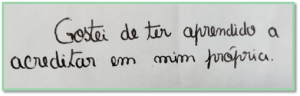 Gostei de ter aprendido a
acreditar em mim própria.